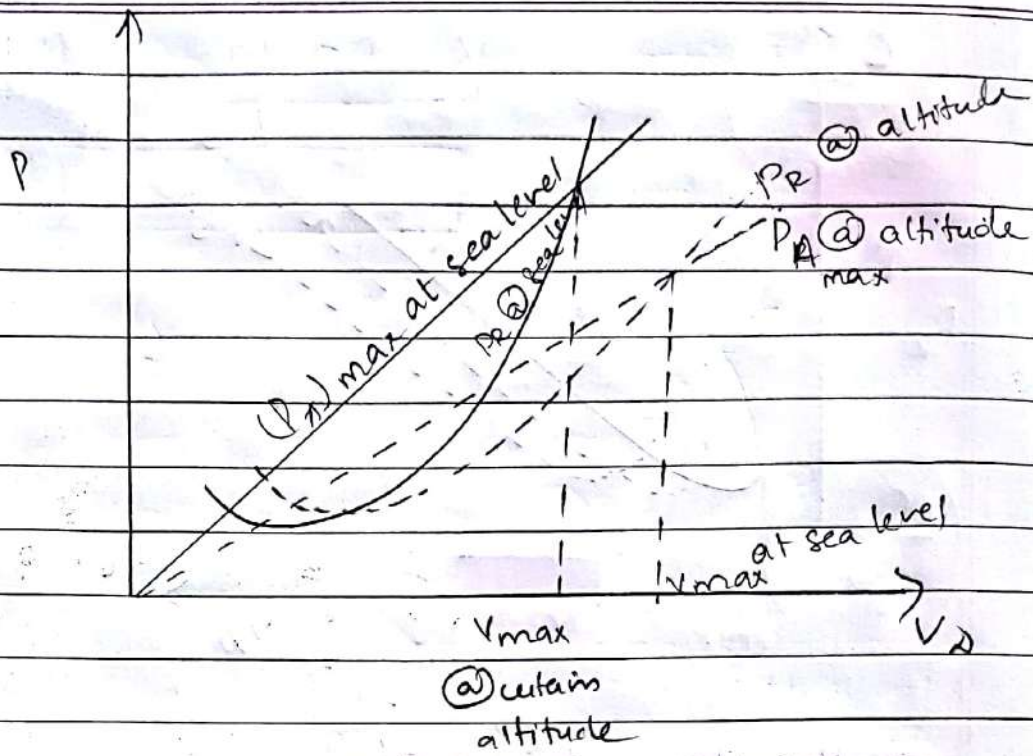 P
(P_A) max at sea level
P_R @ sea level
P_R @ altitude
P_A @ altitude
max
Vmax at sea level
Vmax
@ certain
altitude
V∞